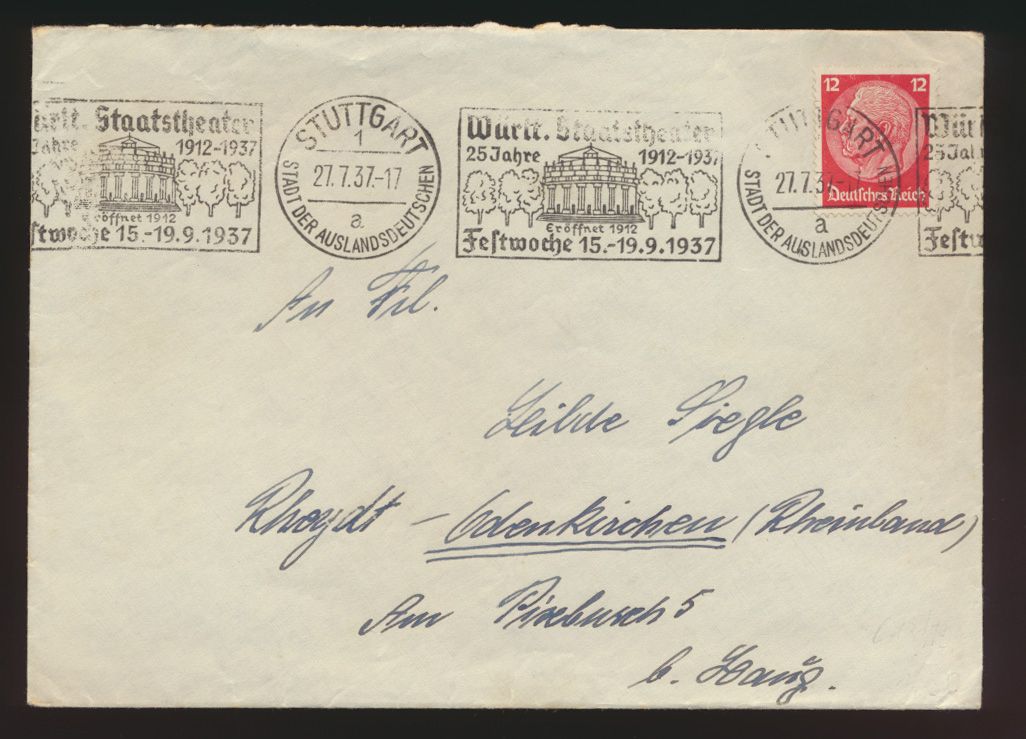 ürtt. Staatstheater
Jahre 1912-1937
Eröffnet 1912
stwoche 15.-19.9.1937
STUTTGART
1
27.7.37.-17
a
STADT DER AUSLANDSDEUTSCHEN
Württ. Staatstheater
25 Jahre 1912-1937
Eröffnet 1912
Festwoche 15.-19.9.1937
STUTTGART
27.7.37
a
STADT DER AUSLANDSDEUTSCHEN
12 12
Deutsches Reich
Würt
25 Jah
Festw
An Frl.
Hilde Siegle
Rheydt - Odenkirchen (Rheinland)
Am Pixbusch 5
b. Haug.